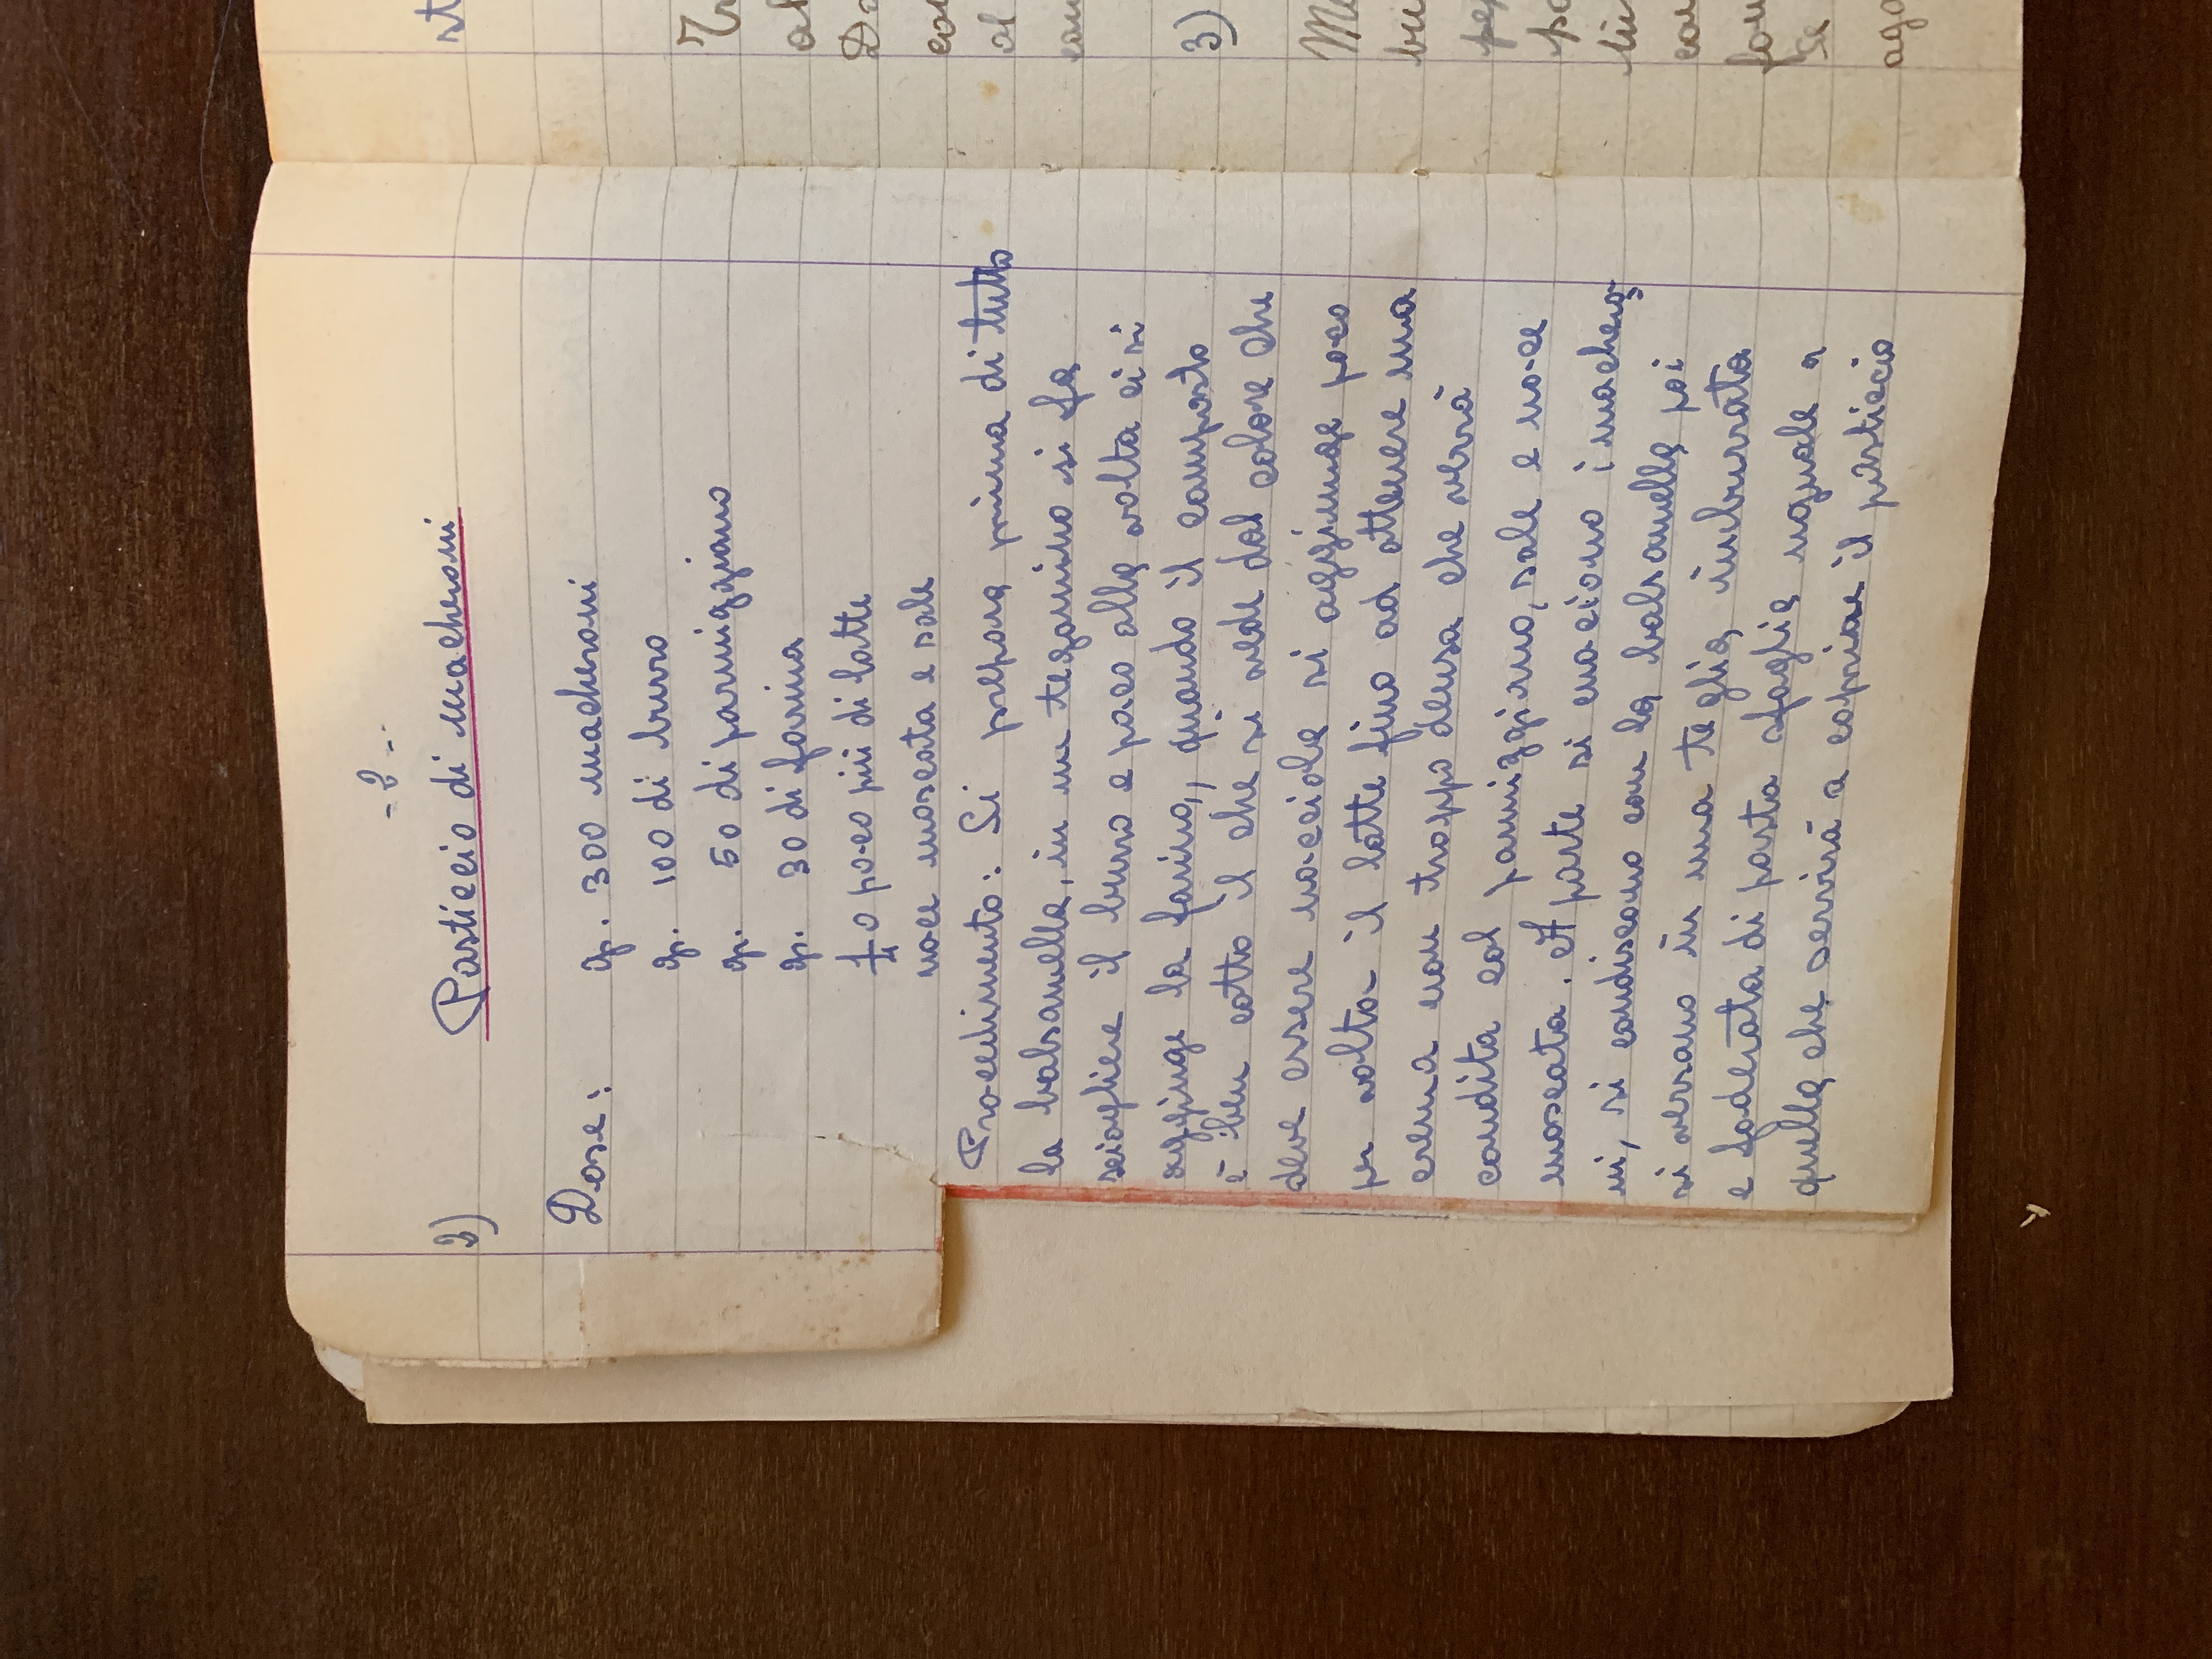 - 2 -
2) Pasticcio di macheroni
Dose: gr. 300 macheroni
gr. 100 di burro
gr. 50 di parmiggiano
gr. 30 di farina
1/4 o poco più di latte
noce moscata e sale
Procedimento: Si prepara prima di tutto
la balsamella, in un tegamino si fa
sciogliere il burro e poco alla volta ci si
aggiuge la farina,, quando il composto
è ben cotto il che si vede dal colore che
deve essere nocciola si aggiunge poco
per volta il latte fino ad ottenere una
crema non troppo densa che verrà
condita col parmiggiano, sale e noce
moscata. A parte si cuociono i machero-
ni, si condiscono con la balsamella poi
si versano in una teglia imburrata
e foderata di pasta sfoglia uguale a
quella che servirà a coprire il pasticcio
st
al
co
al
3)
Me
bu
pe
po
co
Se